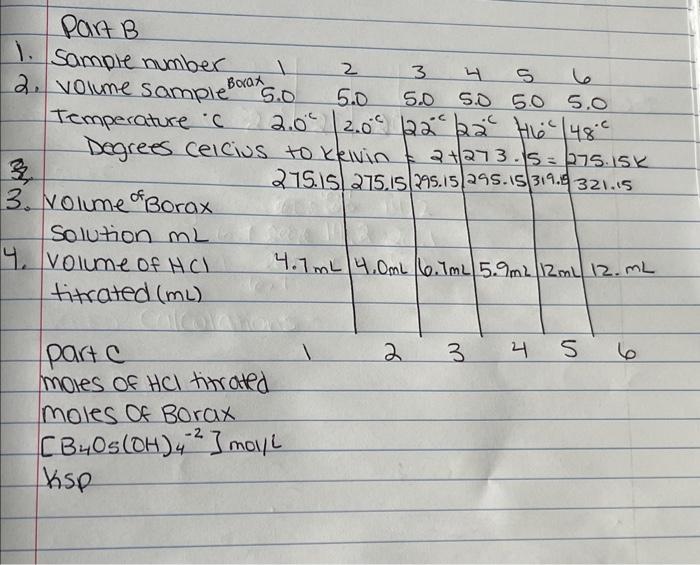 Part B
1. Sample number 1 2 3 4 5 6
2. volume sample Borax 5.0 5.0 5.0 5.0 5.0 5.0
Temperature °C 2.0°C 2.0°C 22°C 22°C 46°C 48°C
Degrees celcius to kelvin = 2+273.15 = 275.15K
275.15 275.15 295.15 295.15 319.15 321.15
3. volume of Borax
solution mL
4. volume of HCl 4.7mL 4.0mL 6.7mL 5.9mL 12mL 12.mL
titrated (mL)
part C 1 2 3 4 5 6
moles of HCl titrated
moles Of Borax
[B4O5(OH)4⁻²] mol/L
Ksp